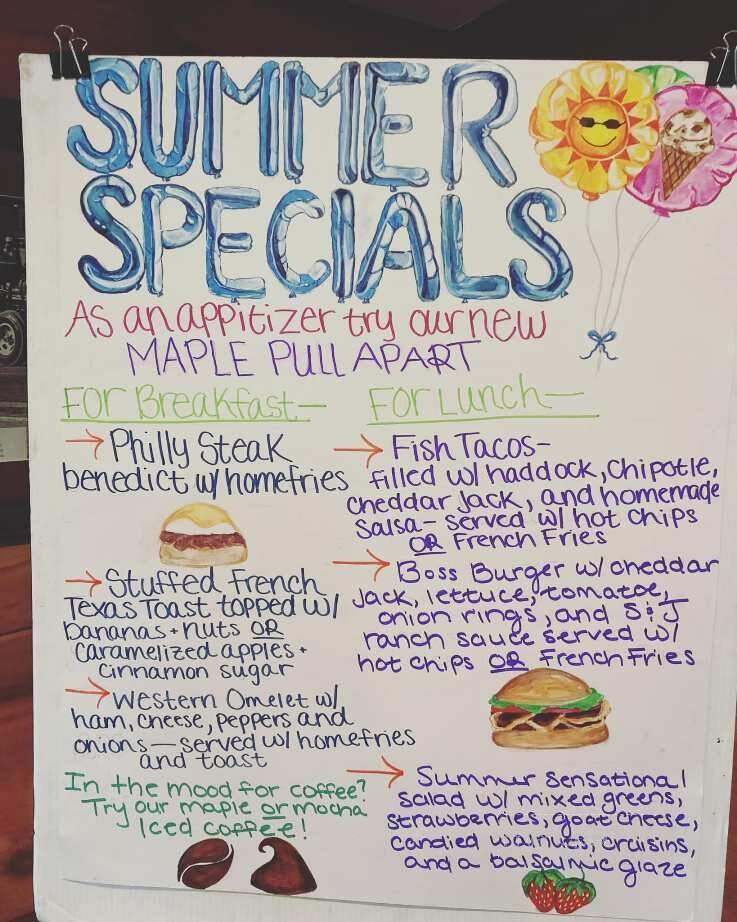 SUMMER
SPECIALS
As an appitizer try our new
MAPLE PULL APART
For Breakfast—
→ Philly Steak
benedict w/ homefries
→ Stuffed French
Texas Toast topped w/
bananas + nuts OR
caramelized apples +
cinnamon sugar
→ Western Omelet w/
ham, cheese, peppers and
onions — served w/ homefries
and toast
In the mood for coffee?
Try our maple or mocha
Iced coffee!
For Lunch—
→ Fish Tacos-
filled w/ haddock, Chipotle,
cheddar Jack, and homemade
salsa - served w/ hot chips
OR French Fries
→ Boss Burger w/ cheddar
Jack, lettuce, tomatoe,
onion rings, and S&J
ranch sauce served w/
hot chips OR French Fries
→ Summer Sensational
salad w/ mixed greens,
strawberries, goat cheese,
candied walnuts, craisins,
and a balsalmic glaze